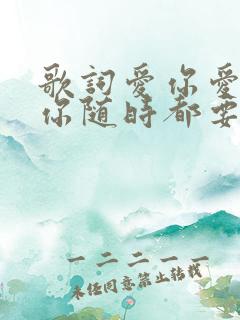 歌詞愛你愛
你随時都要
一二二一一
未经同意禁止转载